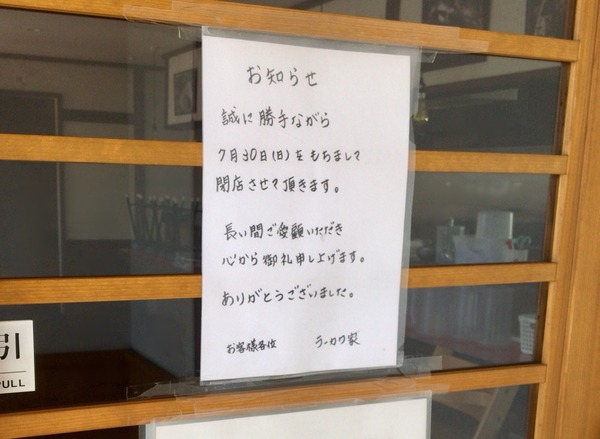 お知らせ
誠に勝手ながら
7月30日(日)をもちまして
閉店させて頂きます。
長い間ご愛顧いただき
心から御礼申し上げます。
ありがとうございました。
お客様各位 ラーカワ家
引
PULL